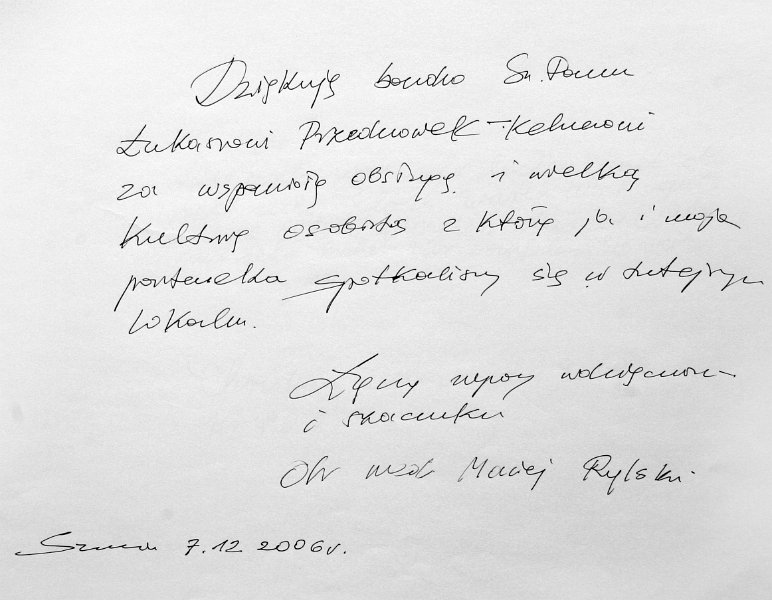 Dziękuję bardzo Sz. Panu
Łukaszowi Przednowek - Kelnerowi
za wspaniałą obsługę i wielką
Kulturę osobistą z którą ja i moja
partnerka spotkaliśmy się w tutejszym
lokalu.
Łączę wyrazy wdzięczności
i szacunku
Dr med Maciej Rylski.
7.12 2006r.